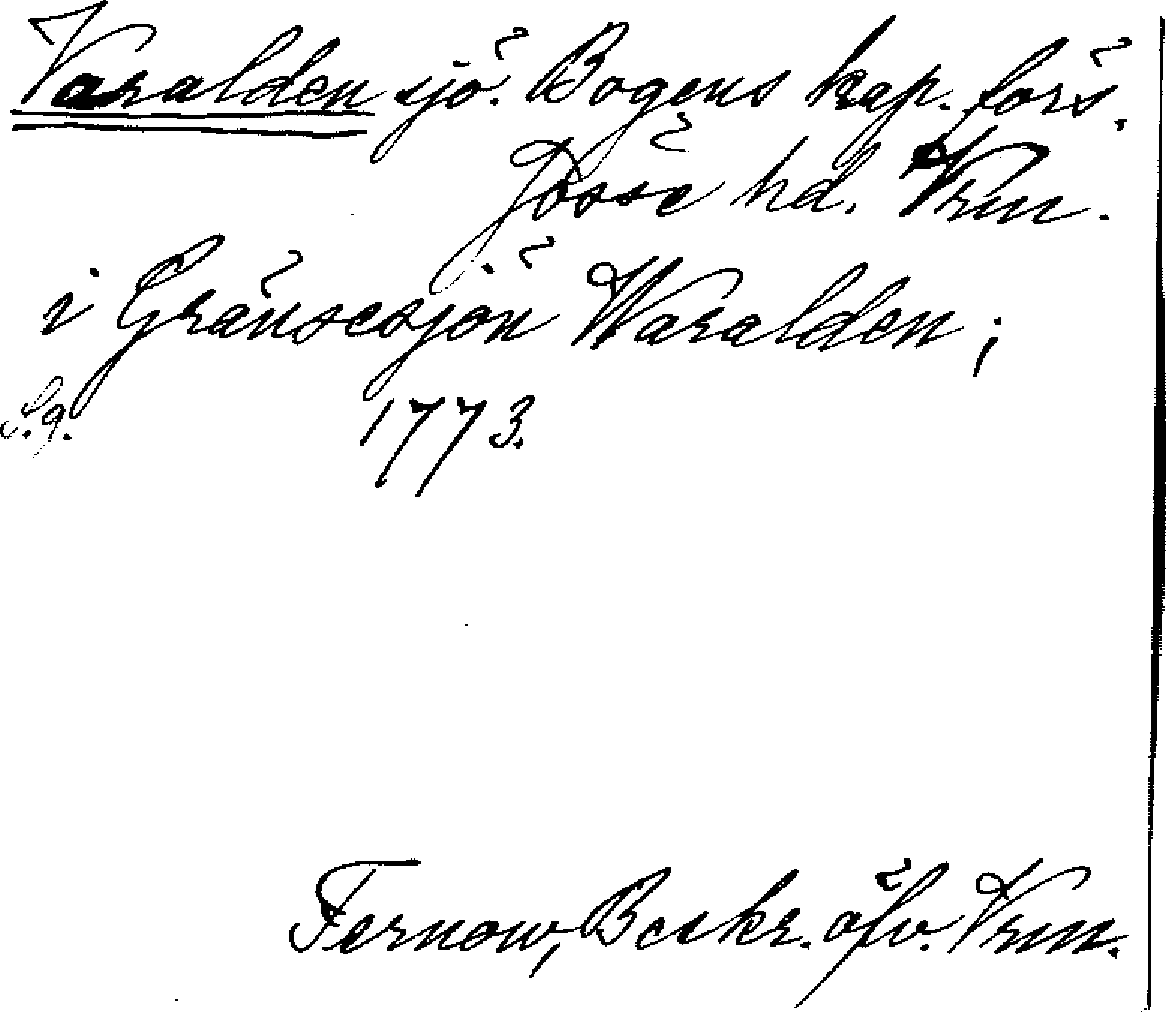 Varalden sjö. Bogens kap. förs.
Jösse hd. Vrm.
i Gränsesjön Waralden;
S. 9. 1773.
Fernow, Beskr. öfv. Vrm.